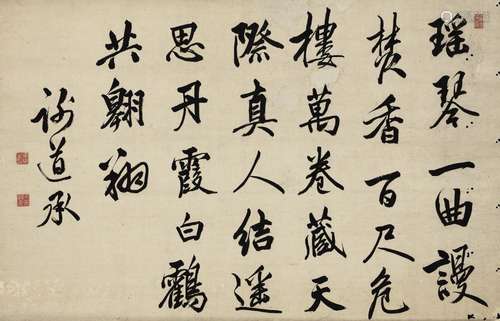 瑶琴一曲謾
焚香百尺危
樓萬卷藏天
際真人結遥
思丹霞白鶴
共翱翔
謝道承